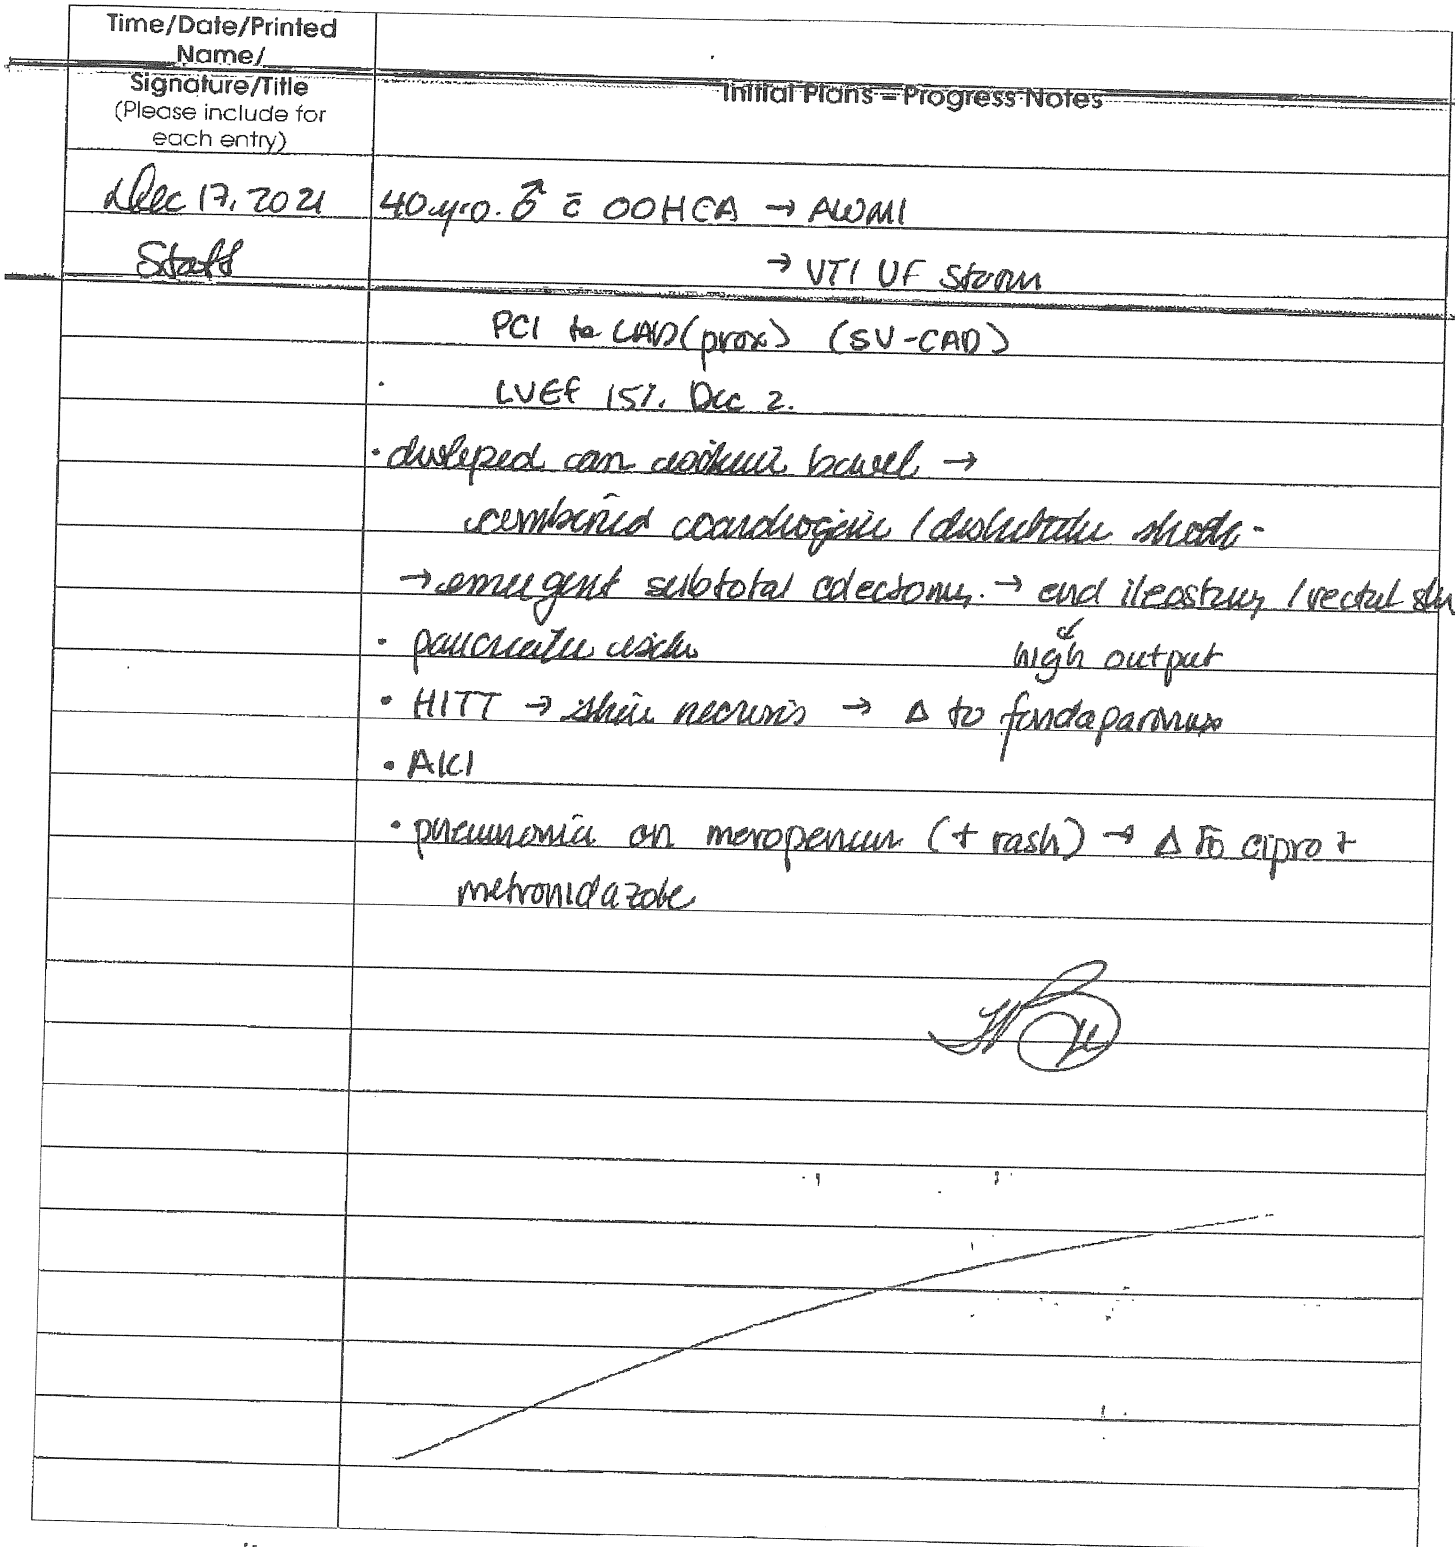 Time/Date/Printed
Name/
Signature/Title
(Please include for
each entry)
Initial Plans - Progress Notes
Dec 17, 2021
Staff
40 y.o. ♂ c̄ OOHCA → AWMI
→ VT/VF Storm
PCI to LAD (prox) (SV-CAD)
LVEF 15% Dec 2.
• bowel →
combined cardiogenic / distributive shock -
→ emergent subtotal colectomy. → end ileostomy / rectal
high output
• pancreatic
• HITT → skin necrosis → Δ to fondaparinux
• AKI
• pneumonia on meropenem (+ rash) → Δ to cipro +
metronidazole